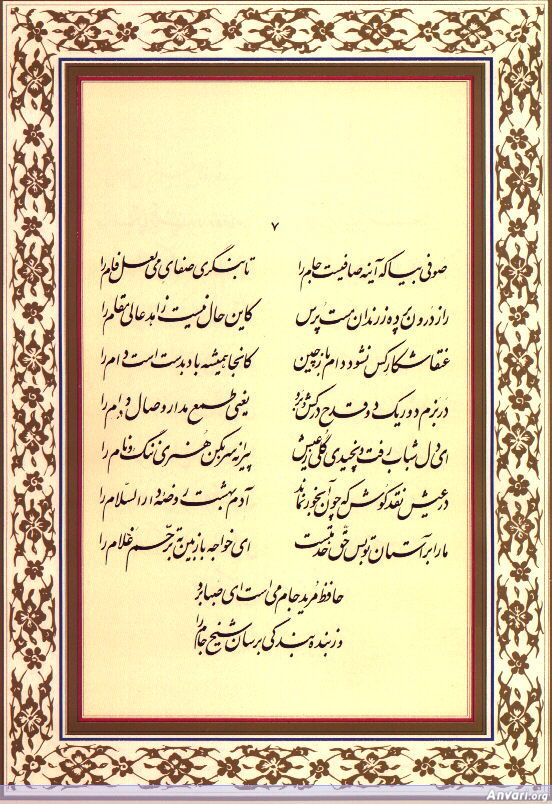 ۷
صوفی بیا که آینه صافیست جام را تا بنگری صفای می لعل فام را
راز درون پرده ز رندان مست پرس کاین حال نیست زاهد عالی مقام را
عنقا شکار کس نشود دام باز چین کانجا همیشه باد بدست است دام را
در بزم دور یک دو قدح درکش و برو یعنی طمع مدار وصال دوام را
ای دل شباب رفت و نچیدی گلی ز عیش پیرانه سر بکن هنری ننگ و نام را
در عیش نقد کوش که چون آبخور نماند آدم بهشت روضه دارالسلام را
ما را بر آستان تو بس حق خدمتست ای خواجه بازبین به ترحم غلام را
حافظ مرید جام می است ای صبا برو
وز بنده بندگی برسان شیخ جام را
Anvari.org